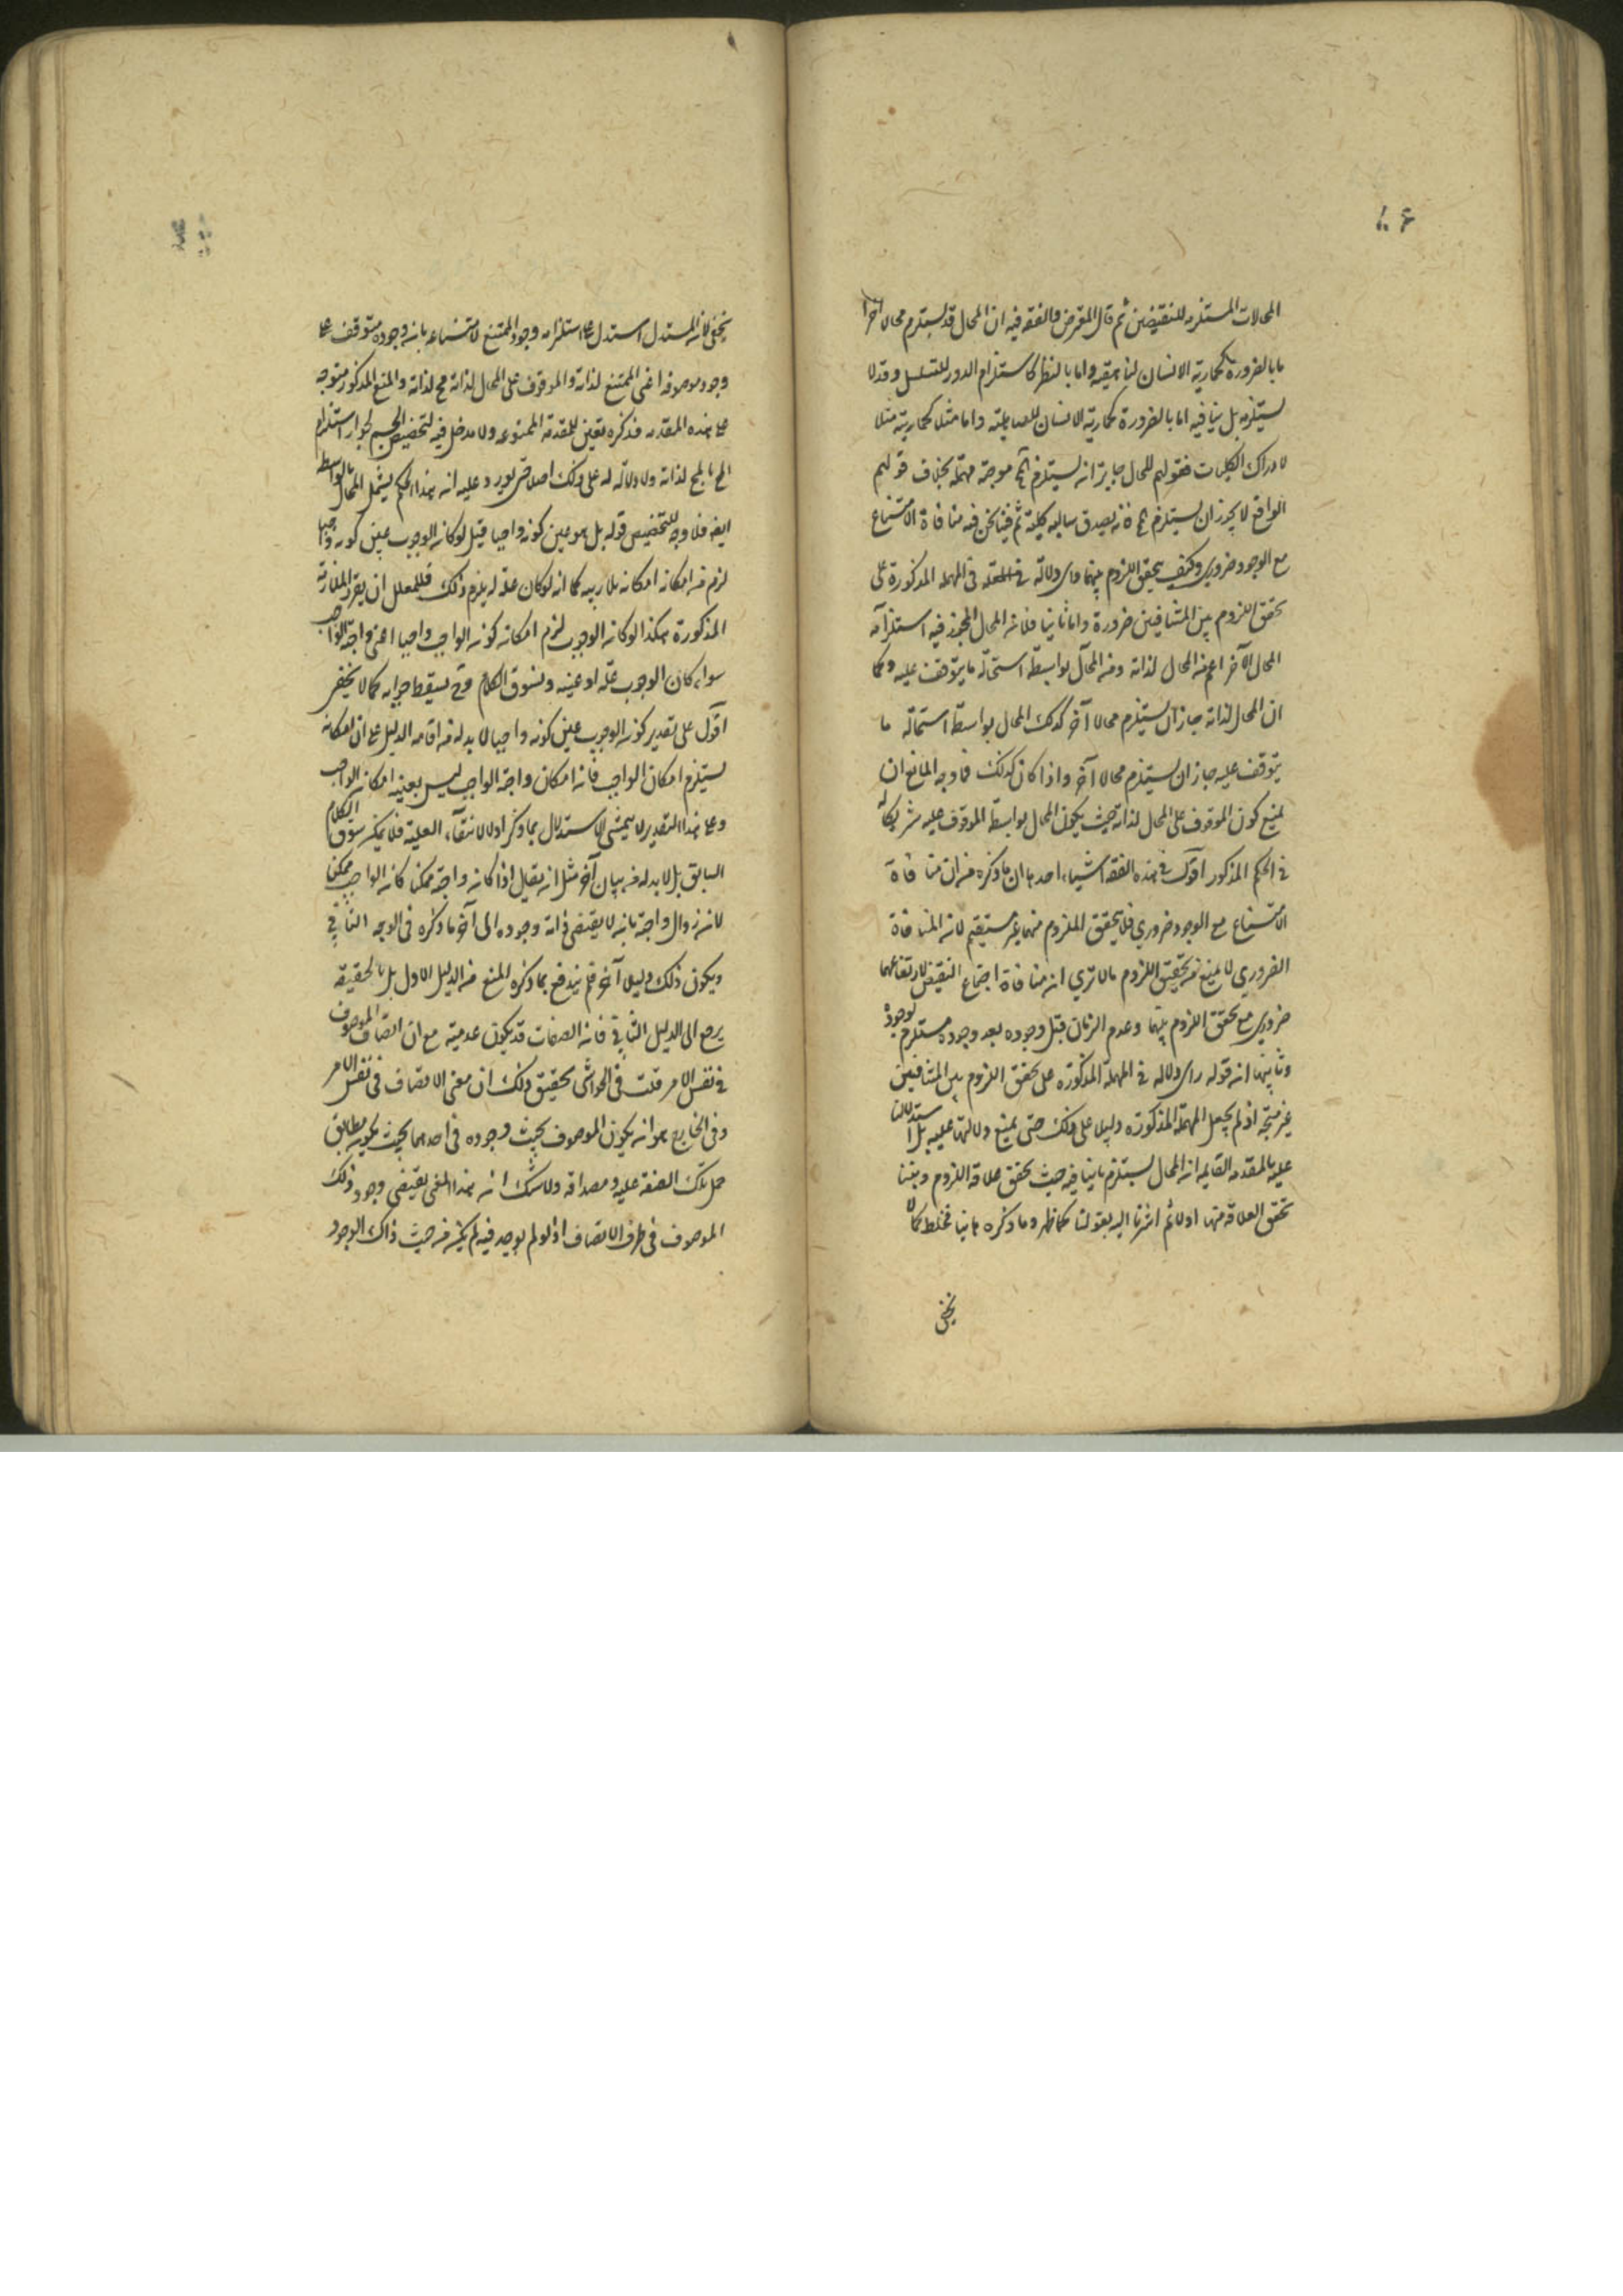 المحالات المستلزمه للنقيضين ثم قال المعترض والفقه فيه ان المحال قد يستلزم محالا آخر
اما بالضرورة كحمارية الانسان لناهقيته واما بالنظر كاستلزام الدور للتسلسل وقد لا
يستلزمه بل ينافيه اما بالضرورة كحمارية الانسان للصاهلية واما مثلا كحمارية مثلا
لادراك الكليات فقولهم المحال جاز ان يستلزم المح موجبة مهملة بخلاف قولهم
الواقع لا يجوز ان يستلزم المح فانه يصدق سالبه كلية ثم فيما نحن فيه منافاة الامتناع
مع الوجود ضروري وكيف يتحقق اللزوم بينهما واى دلالة في المهمله المذكورة على
تحقق اللزوم بين المتنافيين ضرورة واما ثانيا فلان المحال المجوز فيه استلزامه
المحال الآخر اعم من المحال لذاته ومن المحال بواسطة استحالة ما يتوقف عليه وكما
ان المحال لذاته جاز ان يستلزم محالا آخر كذلك المحال بواسطة استحالة ما
يتوقف عليه جاز ان يستلزم محالا آخر واذا كان كذلك فما وجه المانع ان
يمنع كون الموقوف على المحال لذاته حيث يكون المحال بواسطة الموقوف عليه شريكا له
في الحكم المذكور اقول في هذه الفقه اشياء احدها ان ما ذكره من ان منافاة
الامتناع مع الوجود ضروري فلا يتحقق اللزوم منهما غير مستقيم لان المنافاة
الضروري لا يمنع من تحقق اللزوم الا ترى ان منافاة اجتماع النقيضين لارتفاعهما
ضروري مع تحقق اللزوم بينهما وعدم الزمان قبل وجوده بعد وجوده مستلزم لوجوده
وثانيها ان قوله واى دلاله في المهملة المذكوره على تحقق اللزوم بين المتنافيين
غير متجه اذ لم يجعل المهملة المذكوره دليلا على ذلك حتى يمنع دلالتها عليه بل استدللنا
عليه بالمقدمه القايله ان المحال يستلزم ما ينافيه حيث تحقق علاقة اللزوم وبينا
تحقق العلاقة منها اولا ثم اشرنا اليه بقولنا كما ظهر وما ذكره ثانيا مختلط كما لا
يخفى
يخفى لان المستدل استدل على استلزامه وجود الممتنع لامتناعه بان وجوده متوقف على
وجود موصوفه اعنى الممتنع لذاته والموقوف على المحال لذاته مح لذاته والمنع المذكور متوجه
على هذه المقدمه فذكره تعيين للمقدمة الممنوعه ولا مدخل فيه لتخصيص الحكم بجواز استلزام
المح بالمح لذاته ولا دلالة له على ذلك اصلا حتى يورد عليه ان هذا الحكم يشمل المحال بالواسطه
ايضا فلا وجه للتخصيص قوله بل هو عين كونه واجبا قيل لو كان الوجوب عين كونه واجبا
لزم من امكانه امكانه بلا ريبه كما انه لو كان علة له يلزم ذلك فللمعلل ان يقرر المقدمة
المذكورة هكذا لو كان الوجوب لزم امكان كونه الواجب واجبا اعنى واجبية الواجب
سواء كان الوجوب علة او عينه ونسوق الكلام وح يسقط جوابه كما لا يخفى
اقول على تقدير كون الوجوب عين كونه واجبا لا بد له من اقامه الدليل على ان امكانه
يستلزم امكان الواجب فان امكان واجبية الواجب ليس بعينه امكان الواجب
وعلى هذا التقدير لا يتمشى الاستدلال بما ذكر اولا لانتفاء العلية فلا يمكن سوق الكلام
السابق بل لا بد له من بيان آخر مثل ان يقال اذا كانت واجبيته ممكنا كان الواجب ممكنا
لان زوال واجبيته بان لا يقتضى ذاته وجوده الى آخر ما ذكره في الوجه الثاني
ويكون ذلك دليلا آخر فلم يندفع بما ذكره المنع من الدليل الاول بل بالحقيقه
يرجع الى الدليل الثاني فان الصفات قد يكون عدمية مع ان اتصاف الموصوف
في نفس الامر قلت في الحواشى تحقيق ذلك ان معنى الاتصاف في نفس الامر
وفي الخارج هو ان يكون الموصوف بحيث وجوده في احدهما بحيث يكون مطابق
حمل تلك الصفة عليه ومصداقه ولا شك ان هذا المعنى يقتضى وجود ذلك
الموصوف في ظرف الاتصاف اذ لو لم يوجد فيه لم يكن من حيث ذاك الوجود